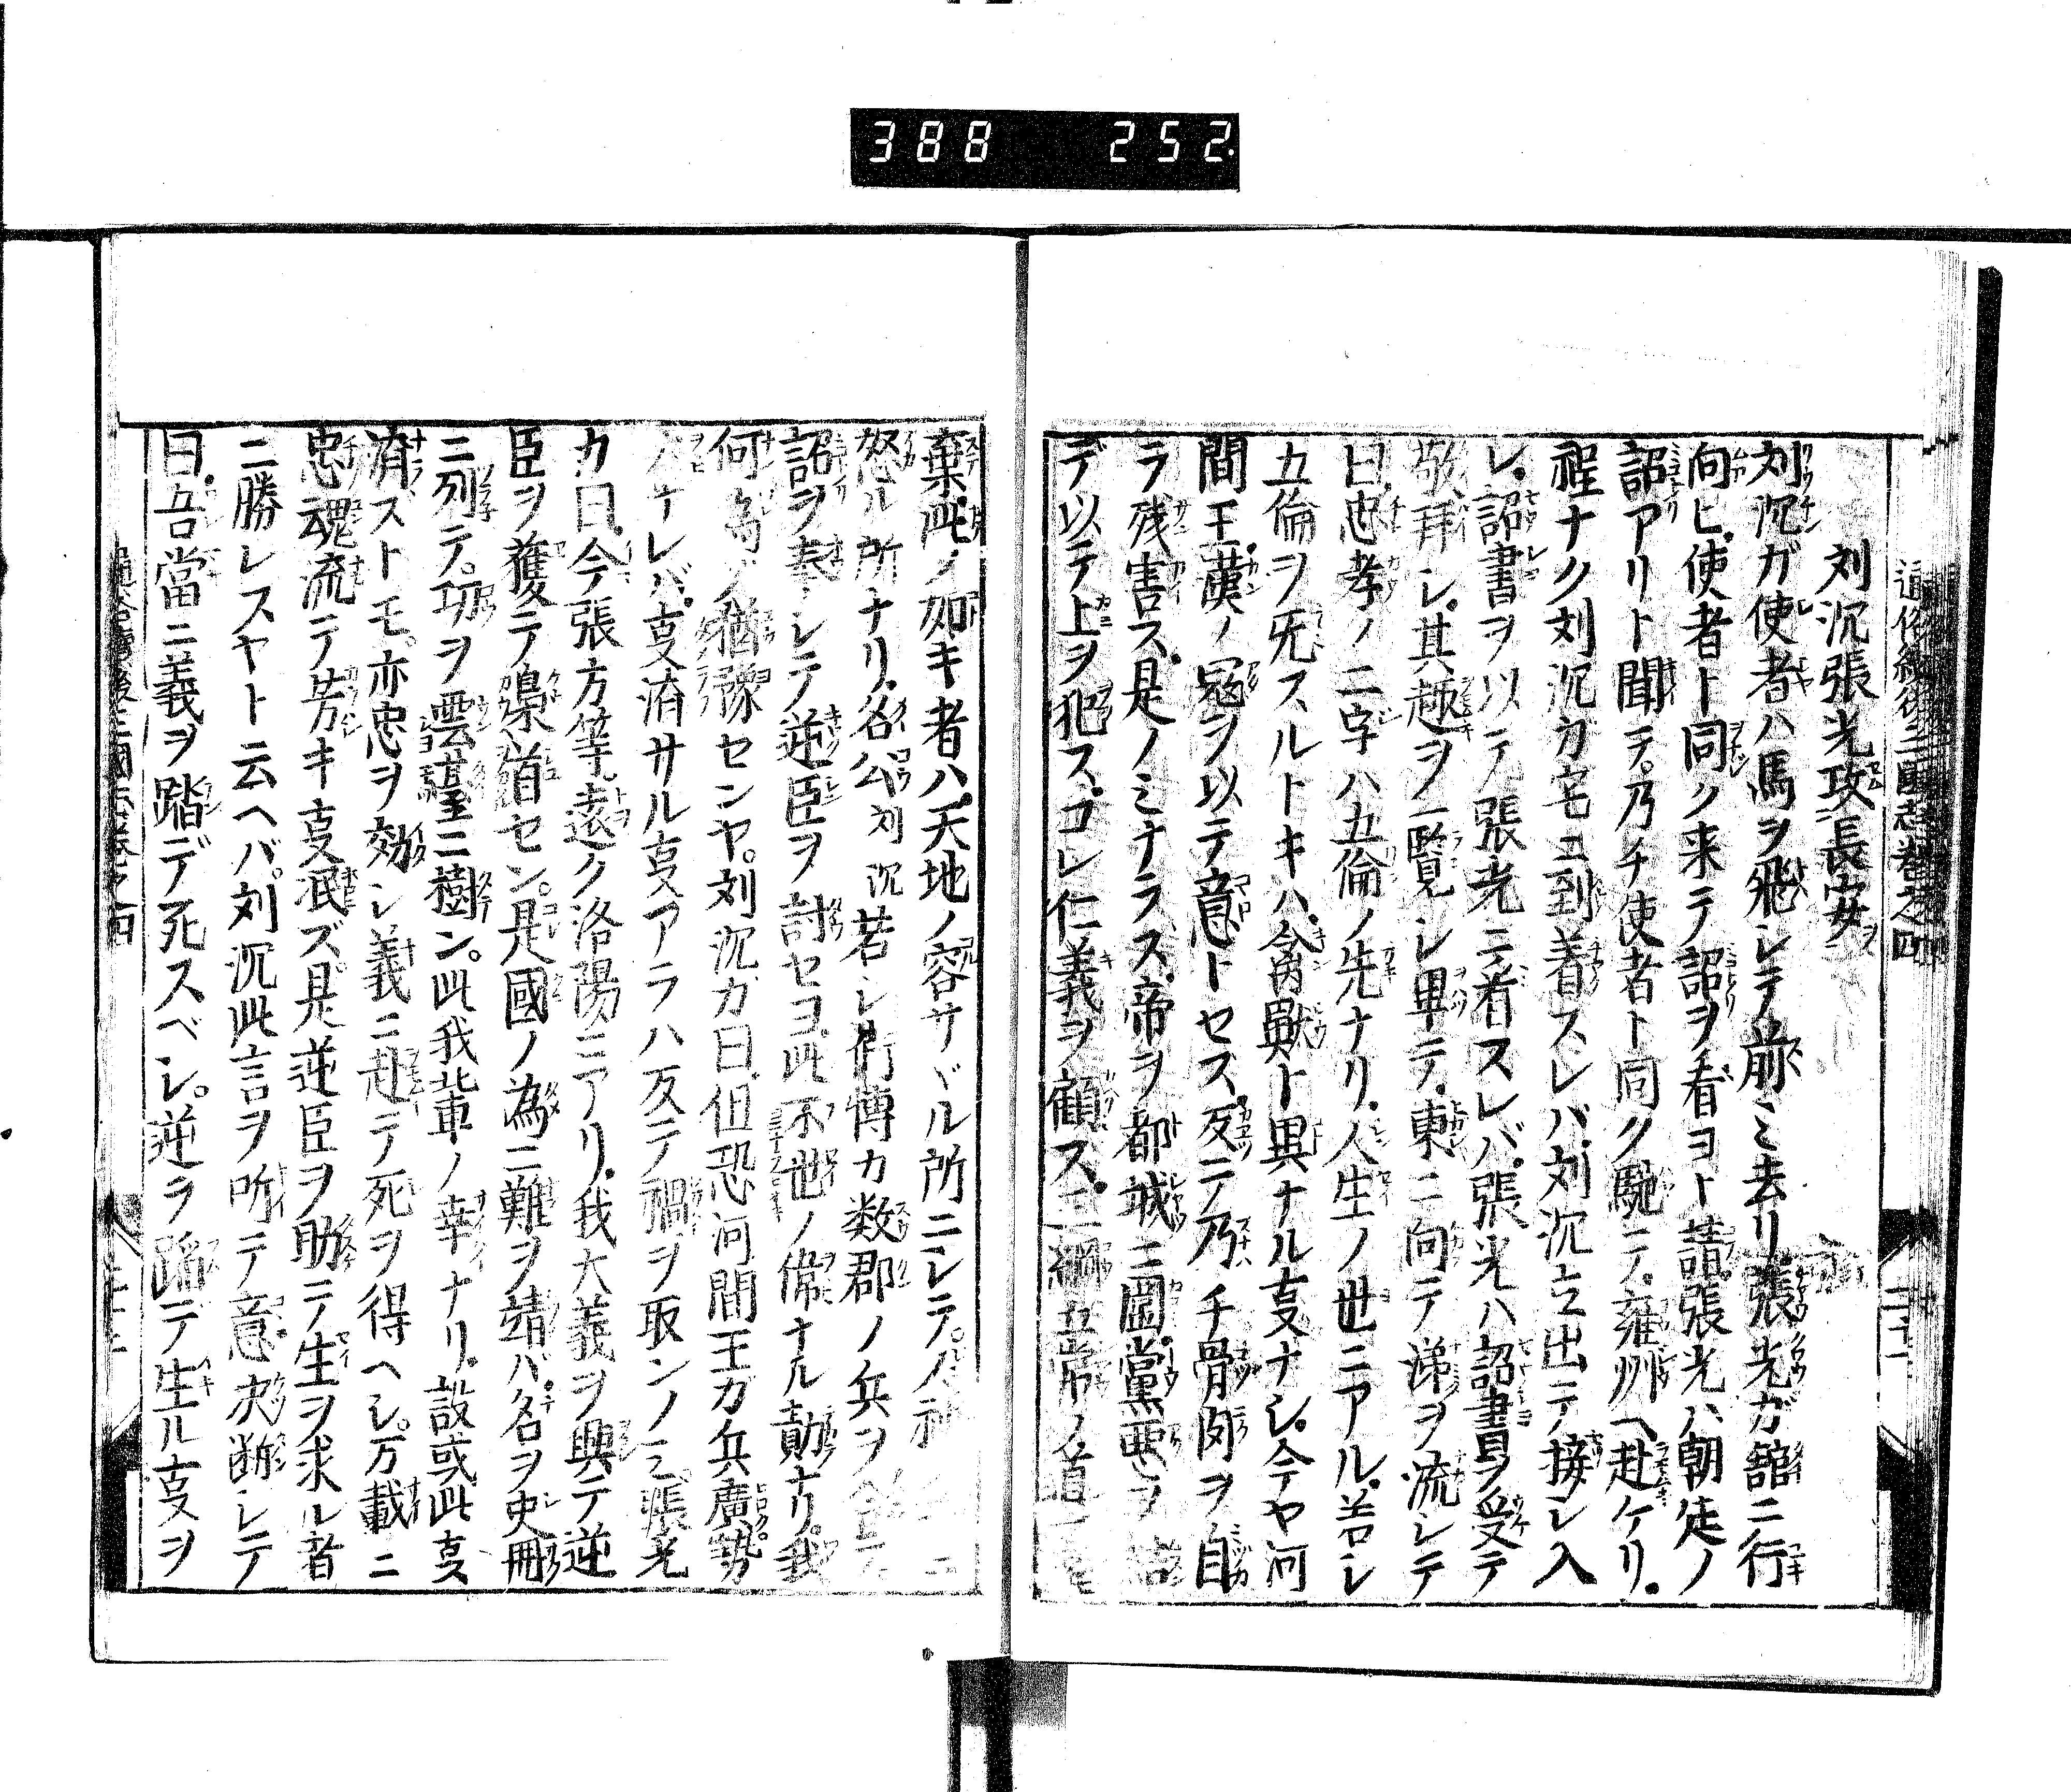 388 252
通俗續後三國志卷之四
劉沉張光攻長安
刘沉ガ使者ハ馬ヲ飛シテ前ミ去リ張光ガ舘ニ行
向ヒ使者ト同ク来テ詔ヲ看ヨト請張光ハ朝徒ノ
詔アリト聞テ乃チ使者ト同ク馳テ雍州ヘ赴ケリ
程ナク刘沉カ宅ニ到着スレバ刘沉立出テ接シ入
レ詔書ヲ以テ張光ニ看スレバ張光ハ詔書ヲ受テ
敬拜シ其趣ヲ一覽シ畢テ東ニ向テ涕ヲ流シテ
曰忠孝ノ二字ハ五倫ノ先ナリ人生ノ世ニアル若シ
五倫ヲ旡スルトキハ禽獸ト異ナル叓ナシ今ヤ河
間王漢ノ冦ヲ以テ意トセス反テ乃チ骨肉ヲ自
ラ残害ス是ノミナラス帝ヲ都城ニ圖黨悪ヲ
デ以テ上ヲ犯スコレ仁義ヲ顧ス三綱五常ノ道
棄此ノ如キ者ハ天地ノ容サヾル所ニシテ
怒ル所ナリ名公刘沉若シ衙博カ数郡ノ兵ヲ
詔ヲ奉シテ逆臣ヲ討セヨ此不世ノ偉ナル勛ナリ我
何為ゾ猶豫センヤ刘沉カ曰但恐河間王カ兵廣勢
ケレバ叓済サル叓アラハ反テ禍ヲ取ンノミ張光
カ曰今張方等遠ク洛陽ニアリ我大義ヲ興テ逆
臣ヲ獲テ梟首セン是國ノ為ニ難ヲ靖バ名ヲ史冊
ニ列テ功ヲ雲臺ニ樹ン此我輩ノ幸ナリ設或此叓
済ストモ亦忠ヲ効シ義ニ赴テ死ヲ得ヘシ万載ニ
忠魂流テ芳キ叓泯ズ是逆臣ヲ助テ生ヲ求ル者
ニ勝レスヤト云ヘバ刘沉此言ヲ听テ意决断シテ
曰吾當ニ義ヲ踏デ死スベシ逆ヲ蹈テ生ル叓ヲ